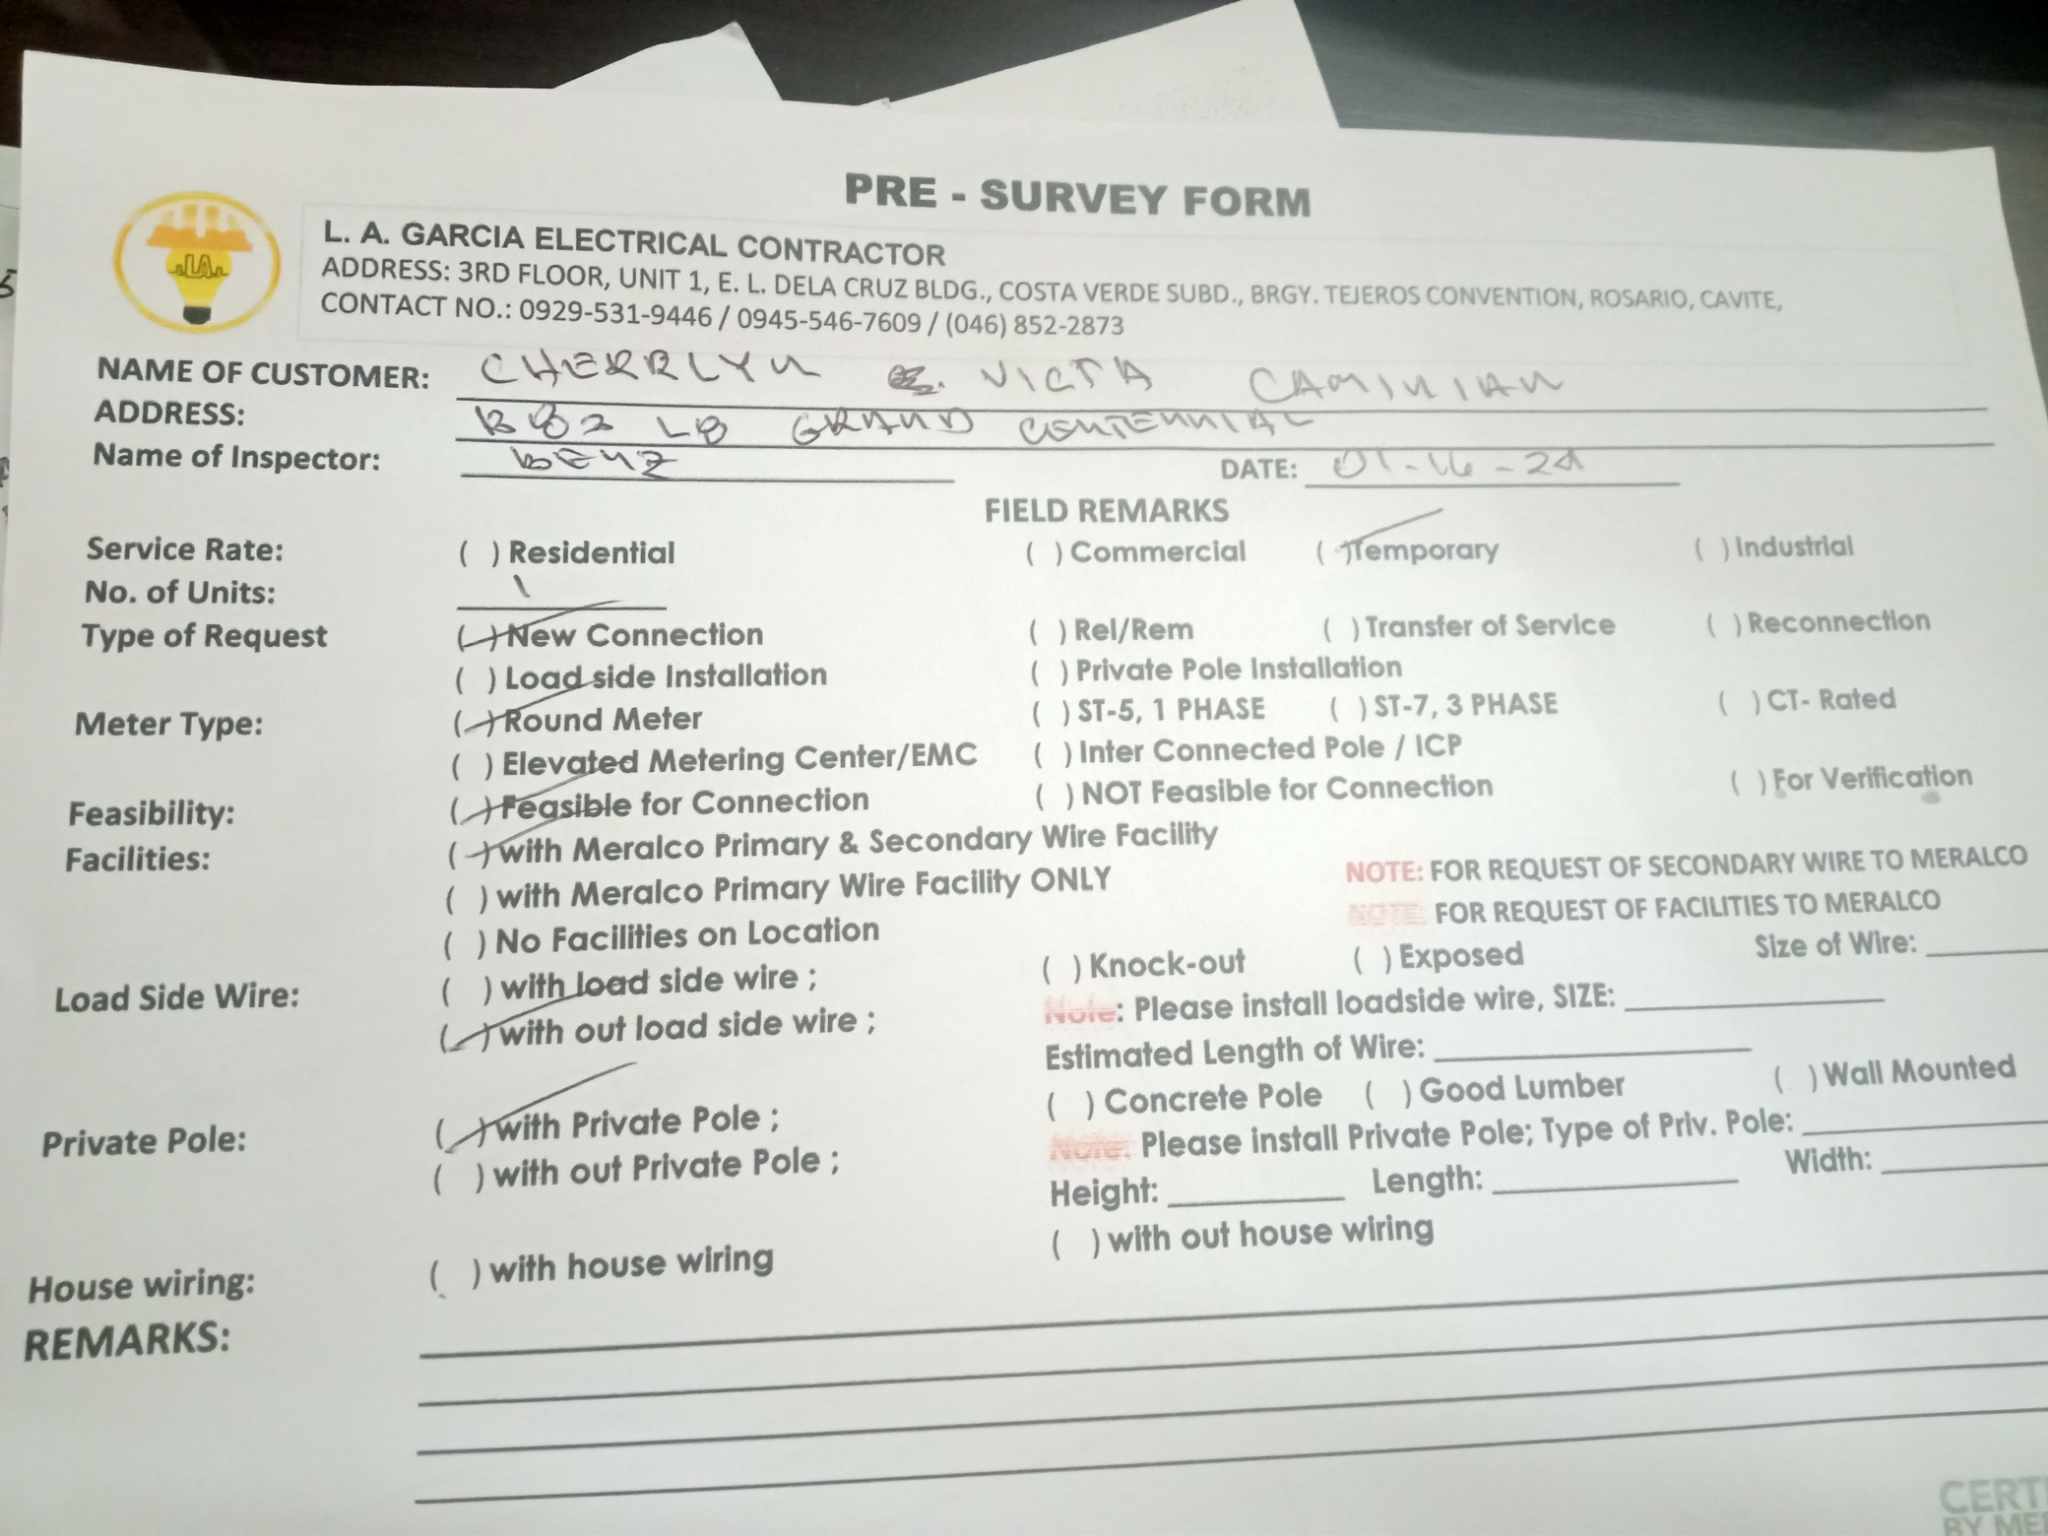 PRE - SURVEY FORM
LA
L. A. GARCIA ELECTRICAL CONTRACTOR
ADDRESS: 3RD FLOOR, UNIT 1, E. L. DELA CRUZ BLDG., COSTA VERDE SUBD., BRGY. TEJEROS CONVENTION, ROSARIO, CAVITE,
CONTACT NO.: 0929-531-9446 / 0945-546-7609 / (046) 852-2873
NAME OF CUSTOMER: CHERRLYN VICTA CAMINIAN
ADDRESS: B82 L8 GRAND CENTENNIAL
Name of Inspector: BENZ DATE: 01-16-24
FIELD REMARKS
Service Rate: ( ) Residential ( ) Commercial (/) Temporary ( ) Industrial
No. of Units: 1
Type of Request (/) New Connection ( ) Rel/Rem ( ) Transfer of Service ( ) Reconnection
( ) Load side Installation ( ) Private Pole Installation
Meter Type: (/) Round Meter ( ) ST-5, 1 PHASE ( ) ST-7, 3 PHASE ( ) CT- Rated
( ) Elevated Metering Center/EMC ( ) Inter Connected Pole / ICP
Feasibility: (/) Feasible for Connection ( ) NOT Feasible for Connection ( ) For Verification
Facilities: (/) with Meralco Primary & Secondary Wire Facility
( ) with Meralco Primary Wire Facility ONLY NOTE: FOR REQUEST OF SECONDARY WIRE TO MERALCO
( ) No Facilities on Location NOTE: FOR REQUEST OF FACILITIES TO MERALCO
Load Side Wire: ( ) with load side wire ; ( ) Knock-out ( ) Exposed Size of Wire:
(/) with out load side wire ; Note: Please install loadside wire, SIZE:
Estimated Length of Wire:
Private Pole: (/) with Private Pole ; ( ) Concrete Pole ( ) Good Lumber ( ) Wall Mounted
( ) with out Private Pole ; Note: Please install Private Pole; Type of Priv. Pole:
Height: Length: Width:
House wiring: ( ) with house wiring ( ) with out house wiring
REMARKS: